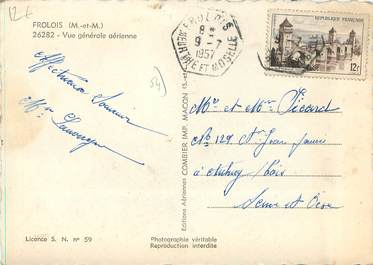 12 €
FROLOIS (M.-et-M.)
26282 - Vue générale aérienne
FROLOIS
8 H
9 - 7
1957
MEURTHE ET MOSELLE
REPUBLIQUE FRANÇAISE
12F
Affectueux Souvenir
Mr et Mme Picard
No 129 St Jean
à
Seine et Oise
Editions Aériennes COMBIER IMP. MACON
Licence S. N. n° 59
Photographie véritable
Reproduction interdite